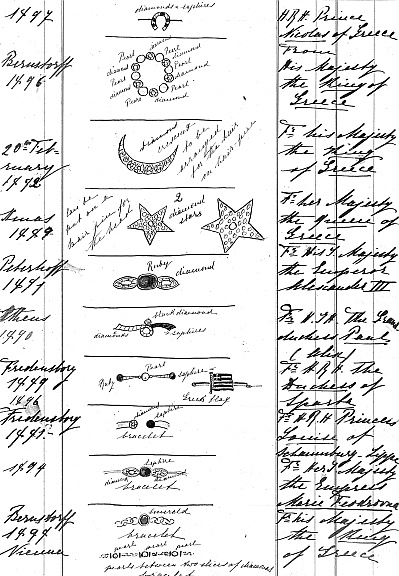 1897
diamonds & sapphires
H.R.H. Prince
Nicolas of Greece
Bernstorff
1896
Pearl
diamond
Pearl
diamond
Pearl
diamond
Pearl
diamond
From
His Majesty
the King of
Greece
20th Feb-
ruary
1892
diamond crescent
to be
arranged
to the hair
on hair-pins
Fr his Majesty
the King
of Greece
Xmas
1889
can be
put on a
hair pin for
the head
2
diamond
stars
Fr her Majesty
the Queen of
Greece
Peterhoff
1891
Ruby
diamond
Fr His I. Majesty
the Emperor
Alexander III
Athens
1890
black diamond
diamonds
& sapphires
Fr H.I.H. The Grand
duchess Paul
(Alix)
Fredensborg
1889
1896
Ruby
Pearl
sapphire
Greek flag
Fr H.R.H. the
Duchess of
Sparta
Fredensborg
diamond
sapphire
bracelet
Fr H.R.H Princess
Louise of
Schaumburg-Lippe
1894
saphire
diamond
diamond
bracelet
Fr Her I. Majesty
the Empress
Marie Feodrovna
Bernstorff
1897
emerald
bracelet
Fr his Majesty
the King
of Greece
Vienna
pearl pearl pearl
pearls between two slices of diamond
bracelet